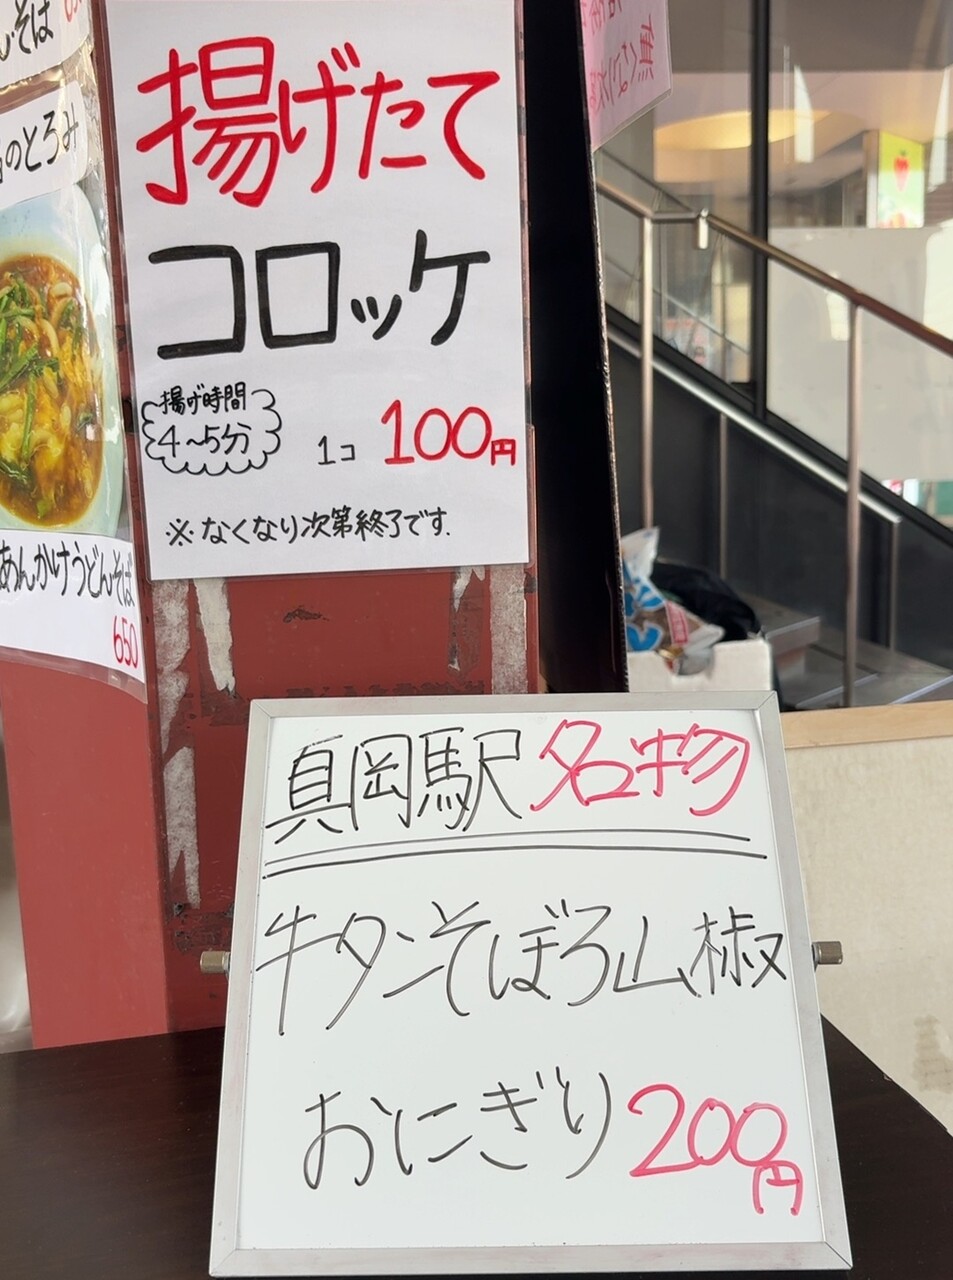 そば
のとろみ
あんかけうどんそば
650
揚げたて
コロッケ
揚げ時間
4〜5分
1コ 100円
※なくなり次第終了です.
真岡駅名物
牛タンそぼろ山椒
おにぎり200円